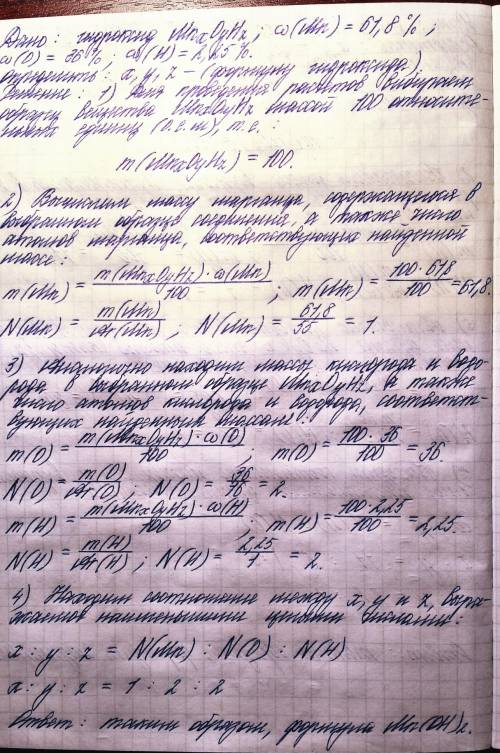 Дано: гидроксид MnxOyHz; ω(Mn) = 61,8%;
ω(O) = 36%; ω(H) = 2,25%.
Определить: x, y, z – (формулу гидроксида).
Решение: 1) Для проведения расчетов выбираем
образец вещества MnxOyHz массой 100 относите-
льных единиц (о.е.м), т.е.:
m(MnxOyHz) = 100.
2) Вычислим массу марганца, содержащегося в
выбранном образце соединения, а также число
атомов марганца, соответствующих найденной
массе:
m(Mn) = m(MnxOyHz)·ω(Mn)/100 ; m(Mn) = 100·61,8/100 = 61,8.
N(Mn) = m(Mn)/Ar(Mn) ; N(Mn) = 61,8/55 = 1.
3) Аналогично находим массы кислорода и водо-
рода в выбранном образце MnxOyHz, а также
число атомов кислорода и водорода, соответст-
вующих найденным массам:
m(O) = m(MnxOyHz)·ω(O)/100 ; m(O) = 100·36/100 = 36.
N(O) = m(O)/Ar(O) ; N(O) = 36/16 = 2.
m(H) = m(MnxOyHz)·ω(H)/100 ; m(H) = 100·2,25/100 = 2,25.
N(H) = m(H)/Ar(H) ; N(H) = 2,25/1 = 2.
4) Находим соотношение между x, y и z, выра-
женное наименьшими целыми числами:
x : y : z = N(Mn) : N(O) : N(H)
x : y : z = 1 : 2 : 2
Ответ: таким образом, формула Mn(OH)2.